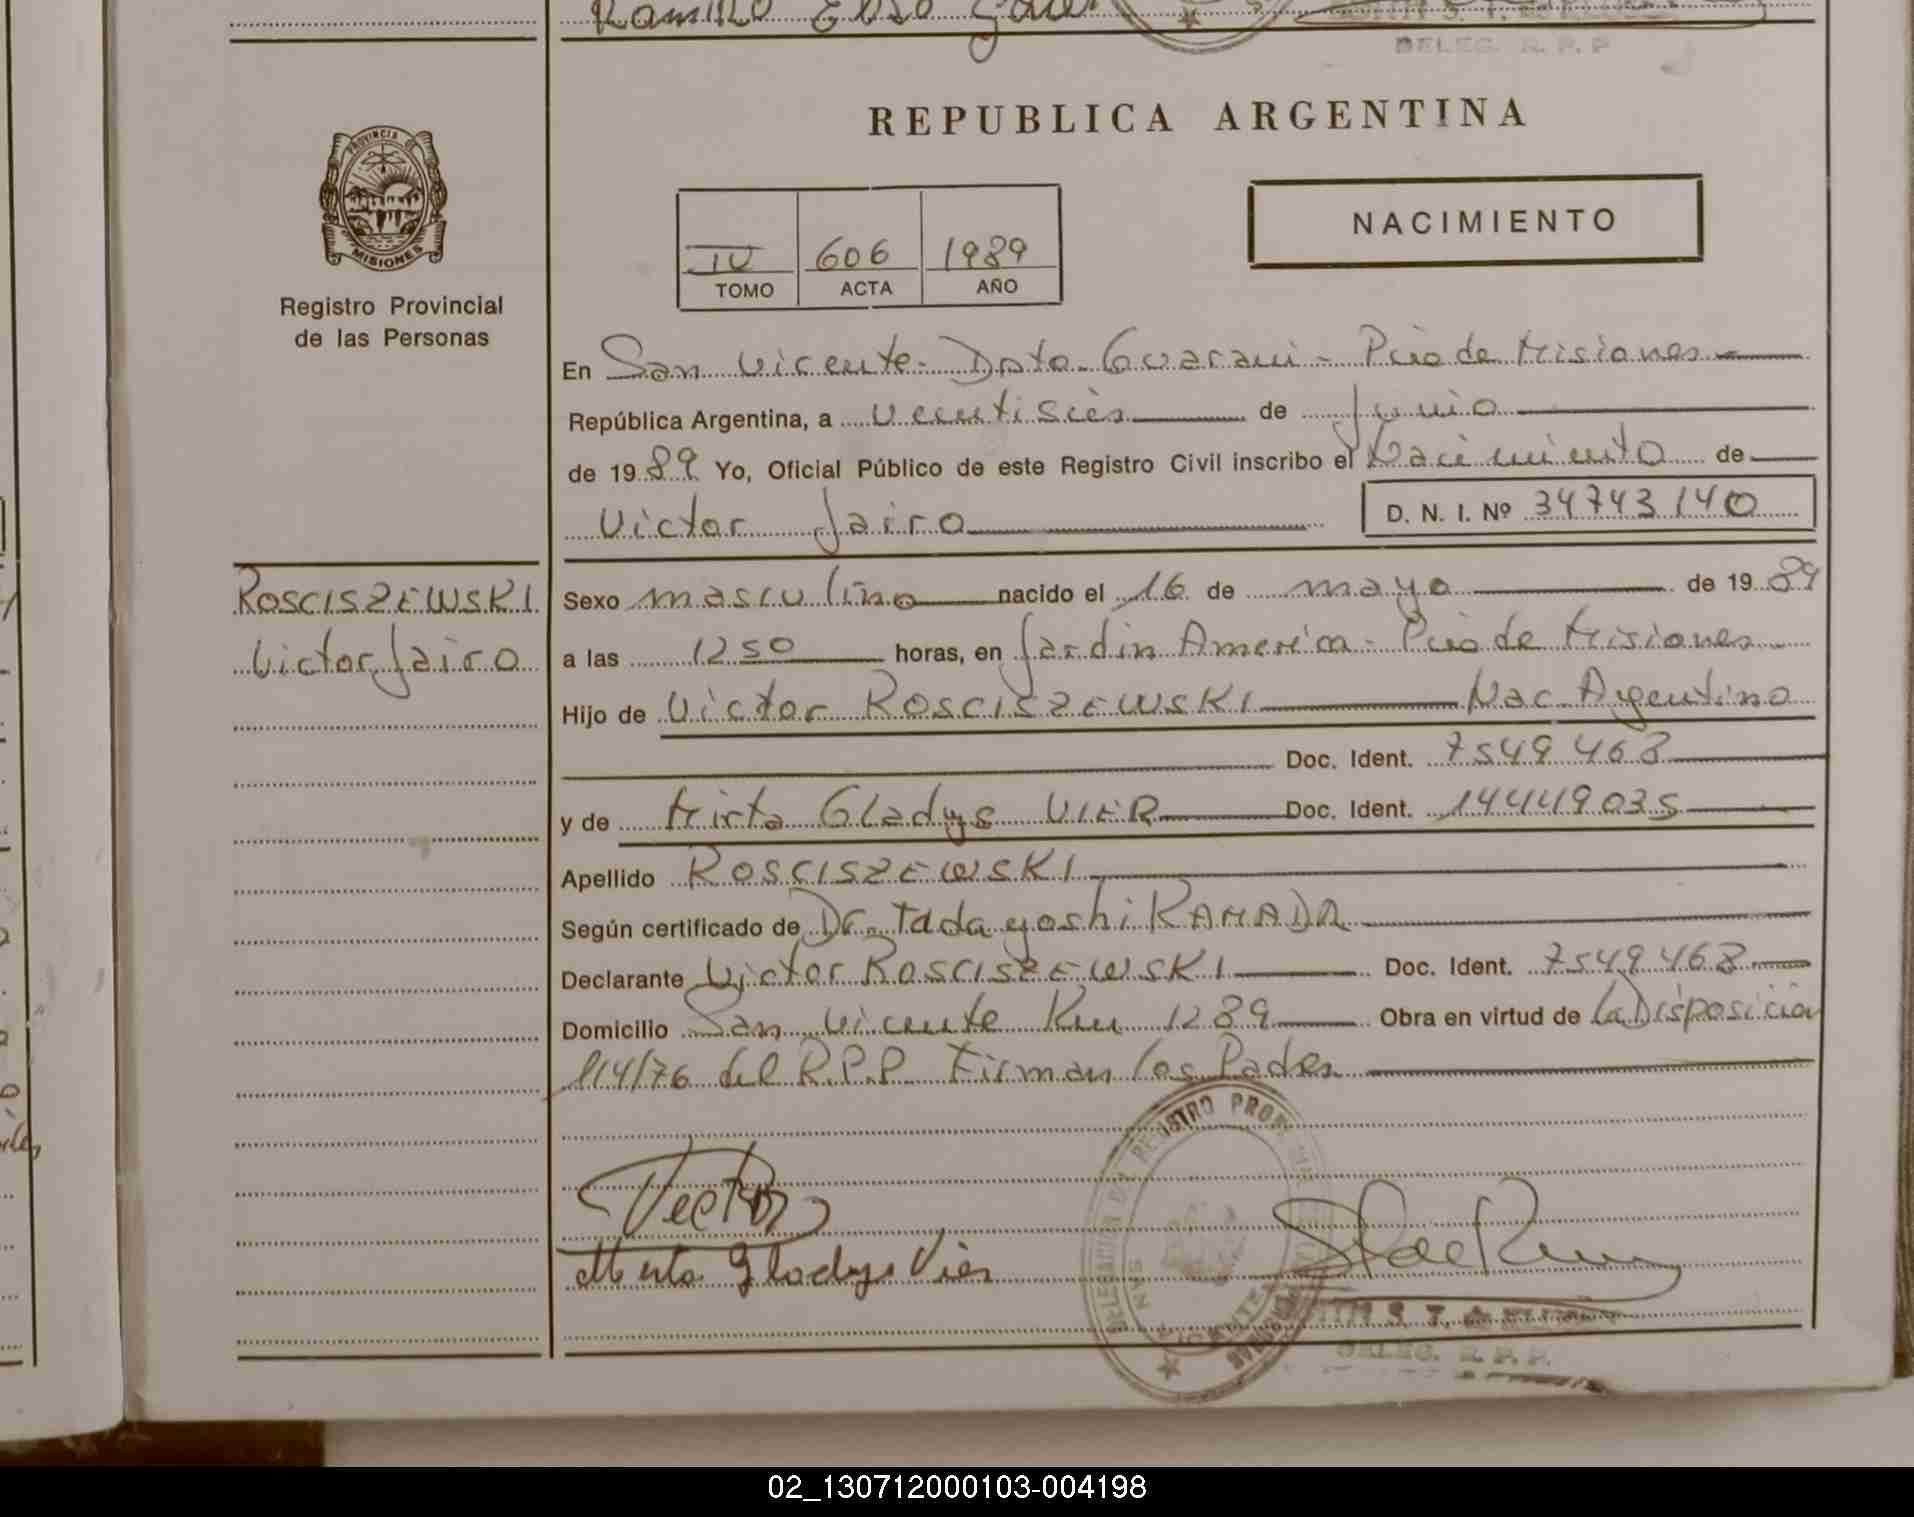 Ramiro Elso
DELEG. R. P. P
REPUBLICA ARGENTINA
PROVINCIA DE
MISIONES
Registro Provincial
de las Personas
NACIMIENTO
IV 606 1989
TOMO ACTA AÑO
En San Vicente - Dpto. Guarani - Pcia de Misiones
República Argentina, a veintiseis de Junio
de 1989 Yo, Oficial Público de este Registro Civil inscribo el Nacimiento de
Victor Jairo D. N. I. Nº 34743140
ROSCISZEWSKI
Victor Jairo
Sexo masculino nacido el 16 de mayo de 1989
a las 1250 horas, en Jardin America - Pcia de Misiones
Hijo de Victor ROSCISZEWSKI Nac. Argentino
Doc. Ident. 7549468
y de Mirta Gladys VIER Doc. Ident. 14449035
Apellido ROSCISZEWSKI
Según certificado de Dr. Tadayoshi KAMADA
Declarante Victor ROSCISZEWSKI Doc. Ident. 7549468
Domicilio San Vicente Km 1289 Obra en virtud de la Disposicion
114/76 del R.P.P Firman los Padres
Mirta Gladys Vier
DELEG. R. P. P.
02_130712000103-004198